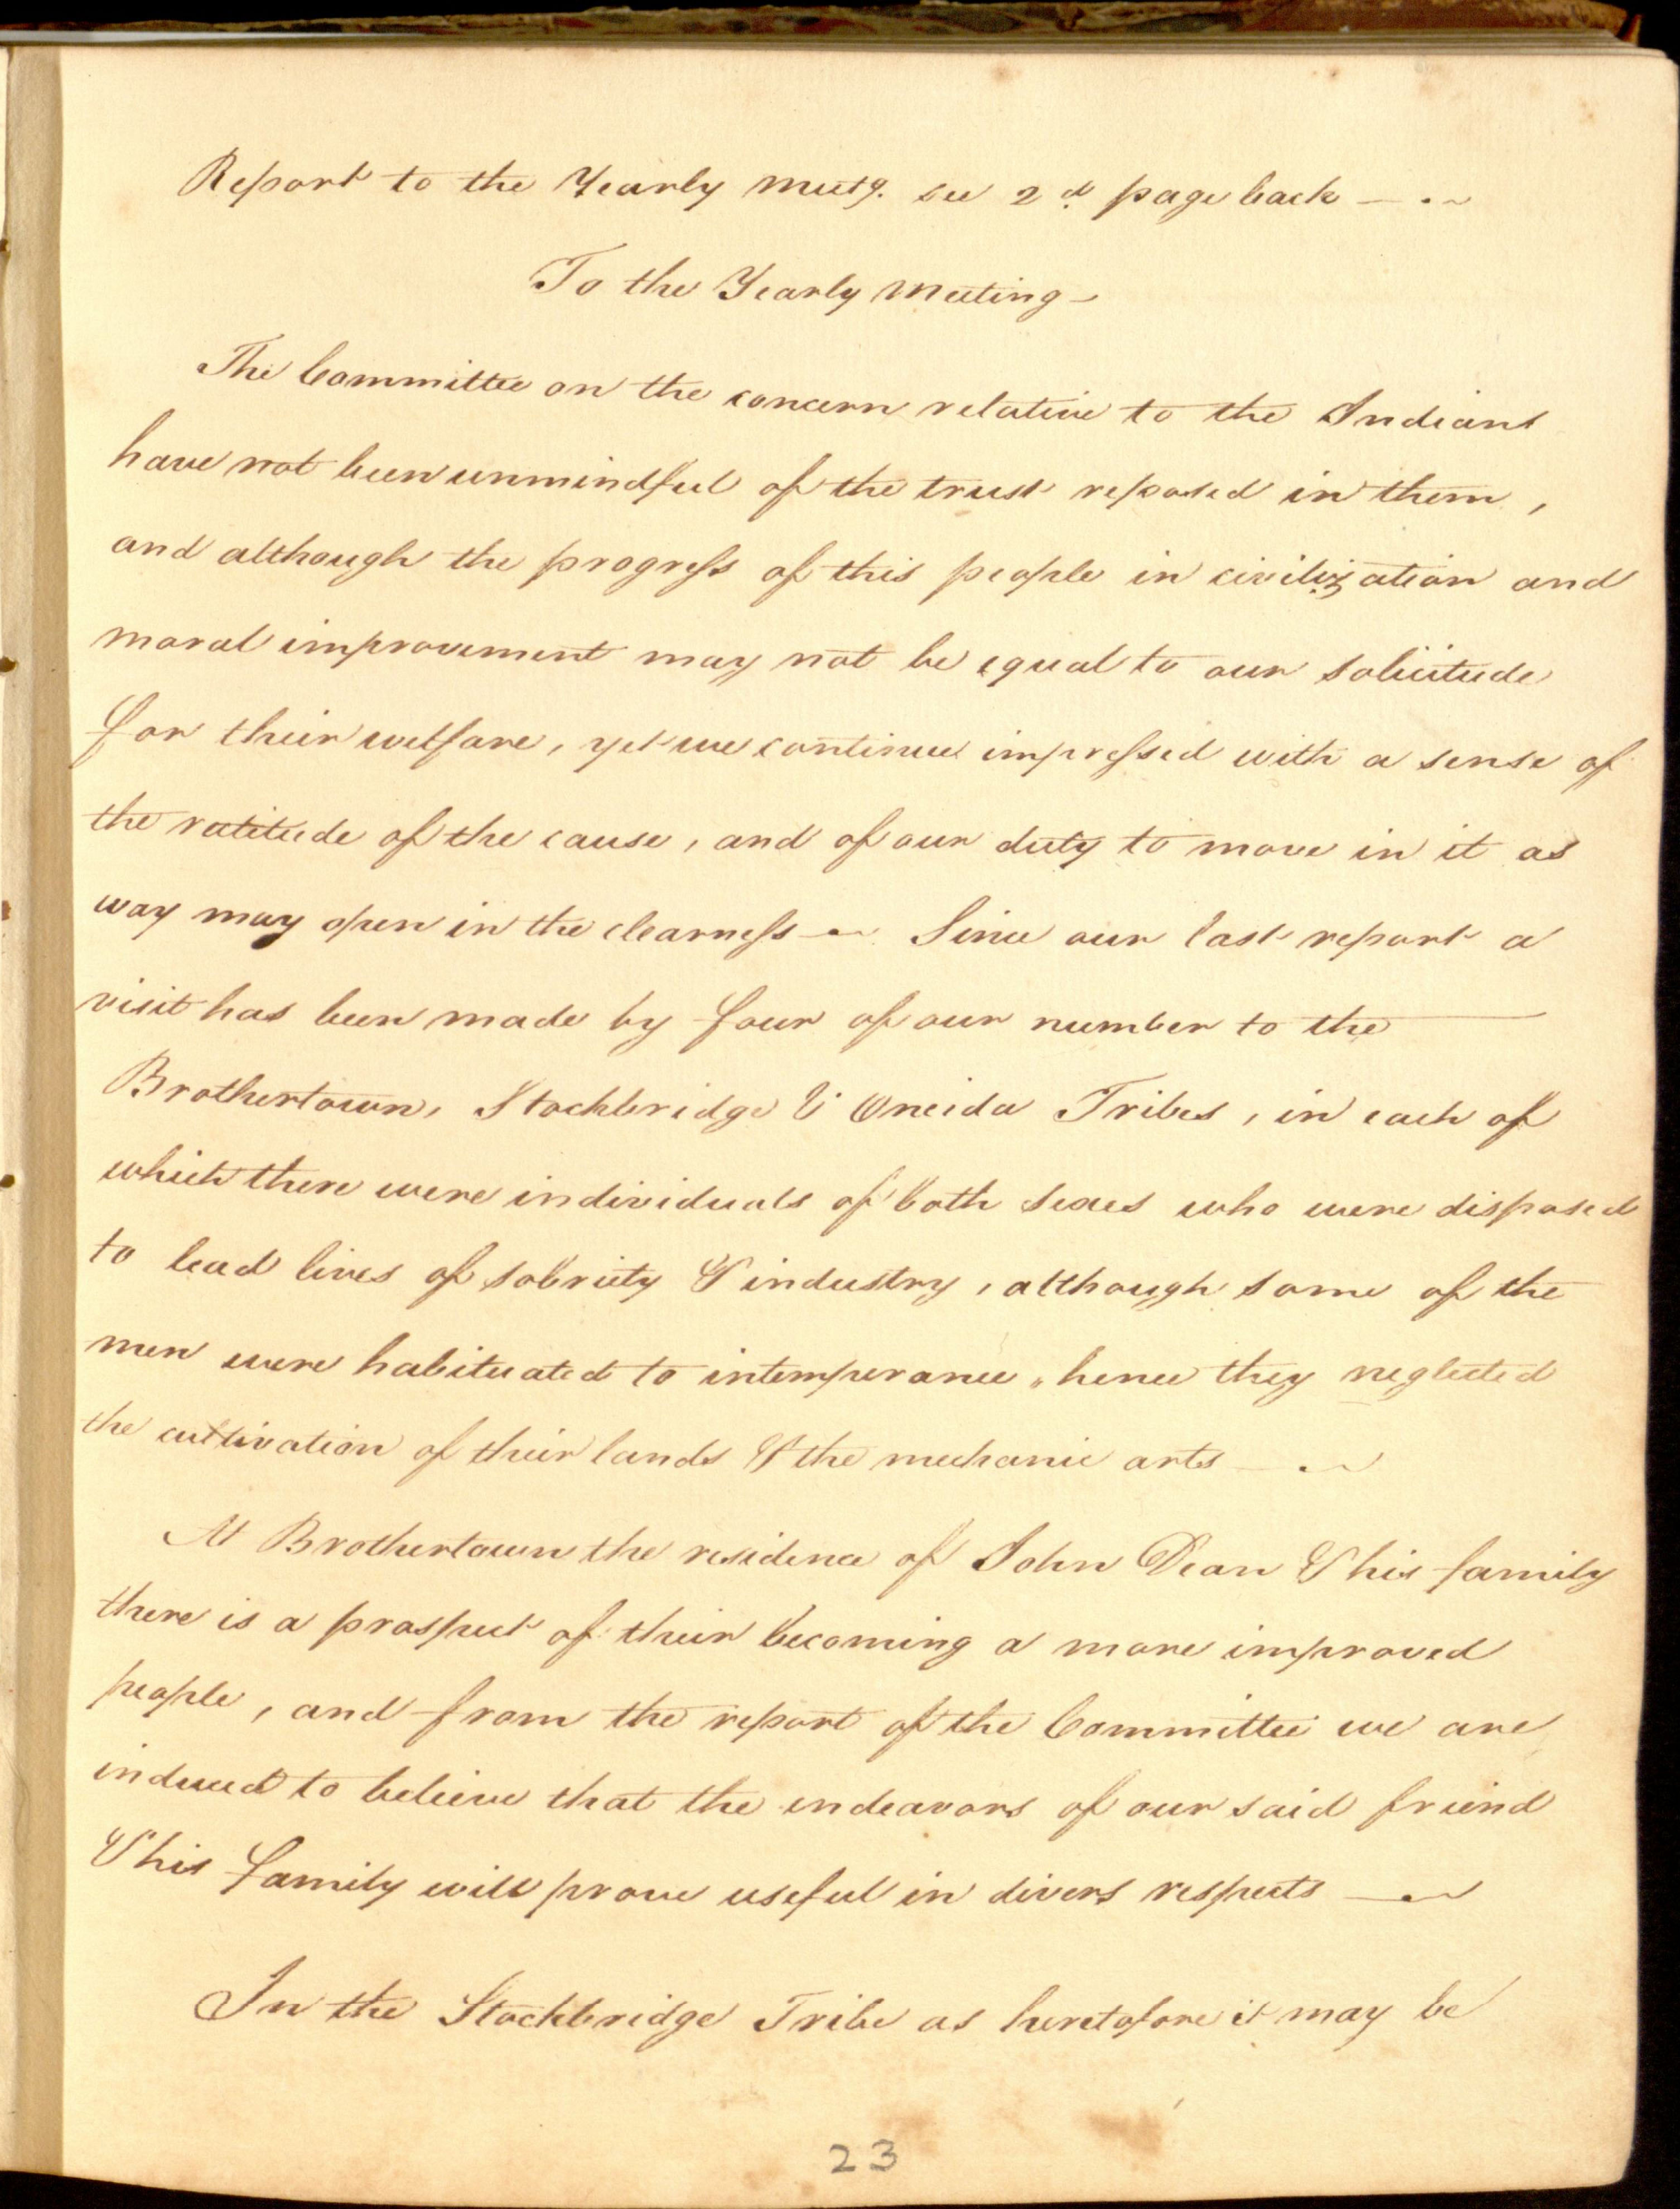 Report to the Yearly Meetg. see 2d page back —
To the Yearly Meeting —
The Committee on the concern relative to the Indians
have not been unmindful of the trust reposed in them,
and although the progress of this people in civilization and
moral improvement may not be equal to our solicitude
for their welfare, yet we continue impressed with a sense of
the rectitude of the cause, and of our duty to move in it as
way may open in the clearness — Since our last report a
visit has been made by four of our number to the
Brothertown, Stockbridge & Oneida Tribes, in each of
which there were individuals of both sexes who were disposed
to lead lives of sobriety & industry, although some of the
men were habituated to intemperance, hence they neglected
the cultivation of their lands & the mechanic arts —
At Brothertown the residence of John Dean & his family
there is a prospect of their becoming a more improved
people, and from the report of the Committee we are
induced to believe that the endeavors of our said friend
& his family will prove useful in divers respects —
In the Stockbridge Tribe as heretofore it may be
23